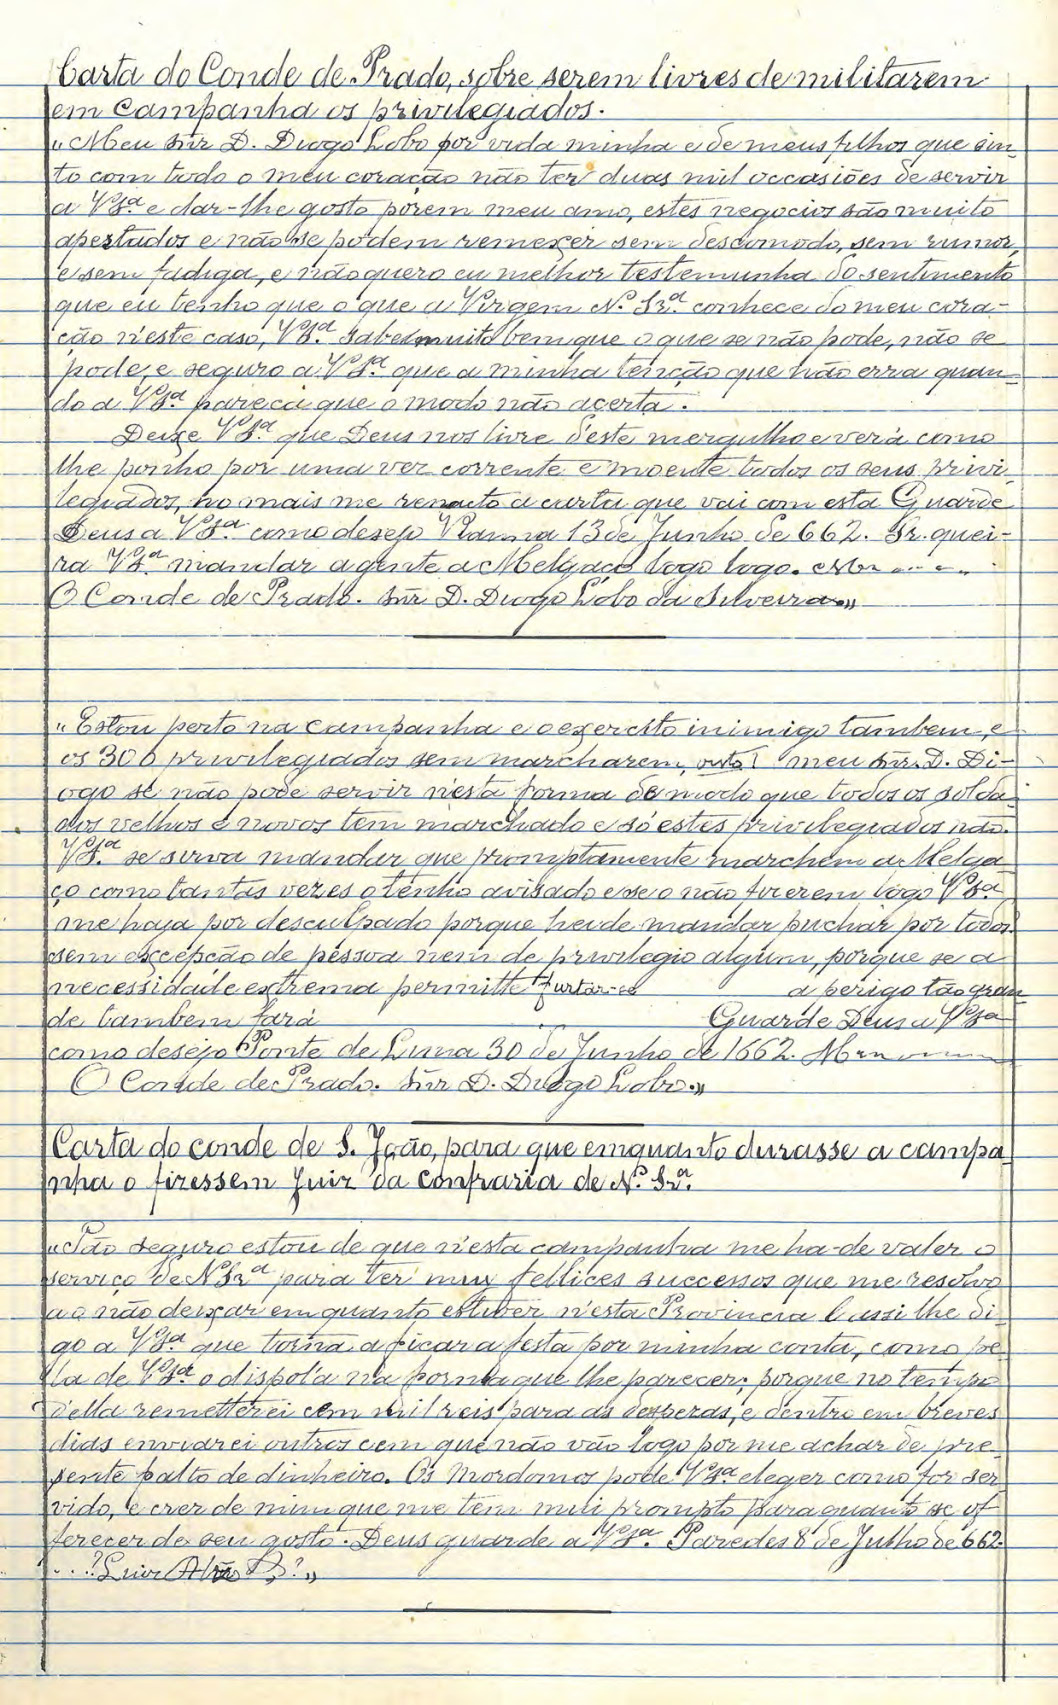 Carta do Conde de Prado, sobre serem livres de militarem
em campanha os privilegiados.
"Meu Snr D. Diogo Lobo por vida minha e de meus filhos que sin-
to com todo o meu coração não ter duas mil occasiões de servir
a VSª e dar-lhe gosto porem meu amo, estes negocios são muito
apertados e não se podem remexer sem descomodo, sem rumor,
e sem fadiga, e não quero eu melhor testemunha do sentimento
que eu tenho que o que a Virgem Nª Srª conhece do meu cora-
ção n'este caso, VSª sabe muito bem que o que se não pode, não se
pode, e seguro a VSª que a minha tenção que não erra quan-
do a VSª pareça que o modo não acerta.
Deixe VSª que Deus nos livre d'este mergulho e verá como
lhe ponho por uma vez corrente e moente todos os seus privi-
legiados, no mais me remeto a carta que vai com esta Guarde
Deus a VSª como desejo Vianna 13 de Junho de 662. Sr. quei-
ra VSª mandar a gente a Melgaço logo logo.
O Conde de Prado. Snr D. Diogo Lobo da Silveira."
"Estou perto na campanha e o exercito inimigo tambem, e
os 300 privilegiados sem marcharem, isto! meu Snr. D. Di-
ogo se não pode servir n'esta forma de modo que todos os solda-
dos velhos e novos tem marchado e só estes privilegiados não.
VSª se sirva mandar que promptamente marchem a Melga-
ço como tantas vezes o tenho avisado e se o não fizerem logo VSª
me haja por desculpado porque heide mandar puchar por todos
sem excepção de pessoa nem de privilegio algum, porque se a
necessidade extrema permitte furtar-se a perigo tão gran-
de tambem fará Guarde Deus a VSª
como desejo Ponte de Lima 30 de Junho de 1662.
O Conde de Prado. Snr D. Diogo Lobo."
Carta do conde de S. João, para que emquanto durasse a campa-
nha o fizessem Juiz da confraria de Nª Srª.
"Tão seguro estou de que n'esta campanha me ha-de valer o
serviço de NSrª para ter muy fellices successos que me resolvo
a o não deixar emquanto estiver n'esta Provincia e assi lhe di-
go a VSª que torna a ficar a festa por minha conta, como pe-
la de VSª o dispola na forma que lhe parecer; porque no tempo
della remetterei cem mil reis para as despezas, e dentro em breves
dias enviarei outros cem que não vão logo por me achar de pre-
sente falto de dinheiro. Os Mordomos pode VSª eleger como for ser-
vido, e crer de mim que me tem mui prompto para quanto se of-
ferecer de seu gosto. Deus guarde a VSª Paredes 8 de Julho de 662.
...? Luiz Alvº ?"